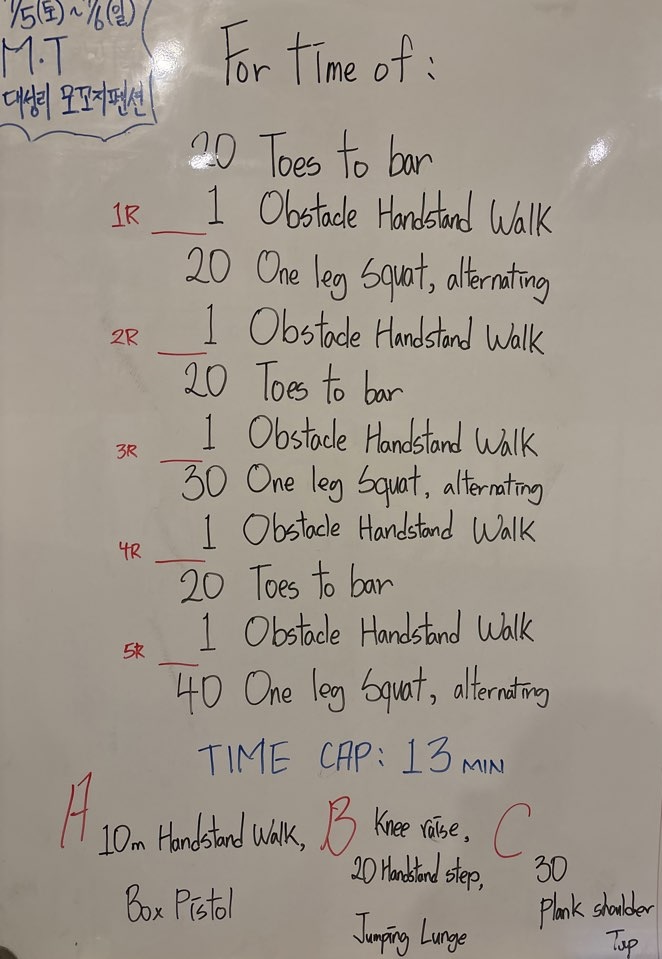 7/5(토)~7/6(일)
M.T
대성리 모꼬지펜션
For time of:
20 Toes to bar
1R 1 Obstacle Handstand Walk
20 One leg Squat, alternating
2R 1 Obstacle Handstand Walk
20 Toes to bar
3R 1 Obstacle Handstand Walk
30 One leg Squat, alternating
4R 1 Obstacle Handstand Walk
20 Toes to bar
5R 1 Obstacle Handstand Walk
40 One leg Squat, alternating
TIME CAP: 13 MIN
A
10m Handstand Walk,
Box Pistol
B
Knee raise,
20 Handstand step,
Jumping Lunge
C
30
Plank shoulder
Tap